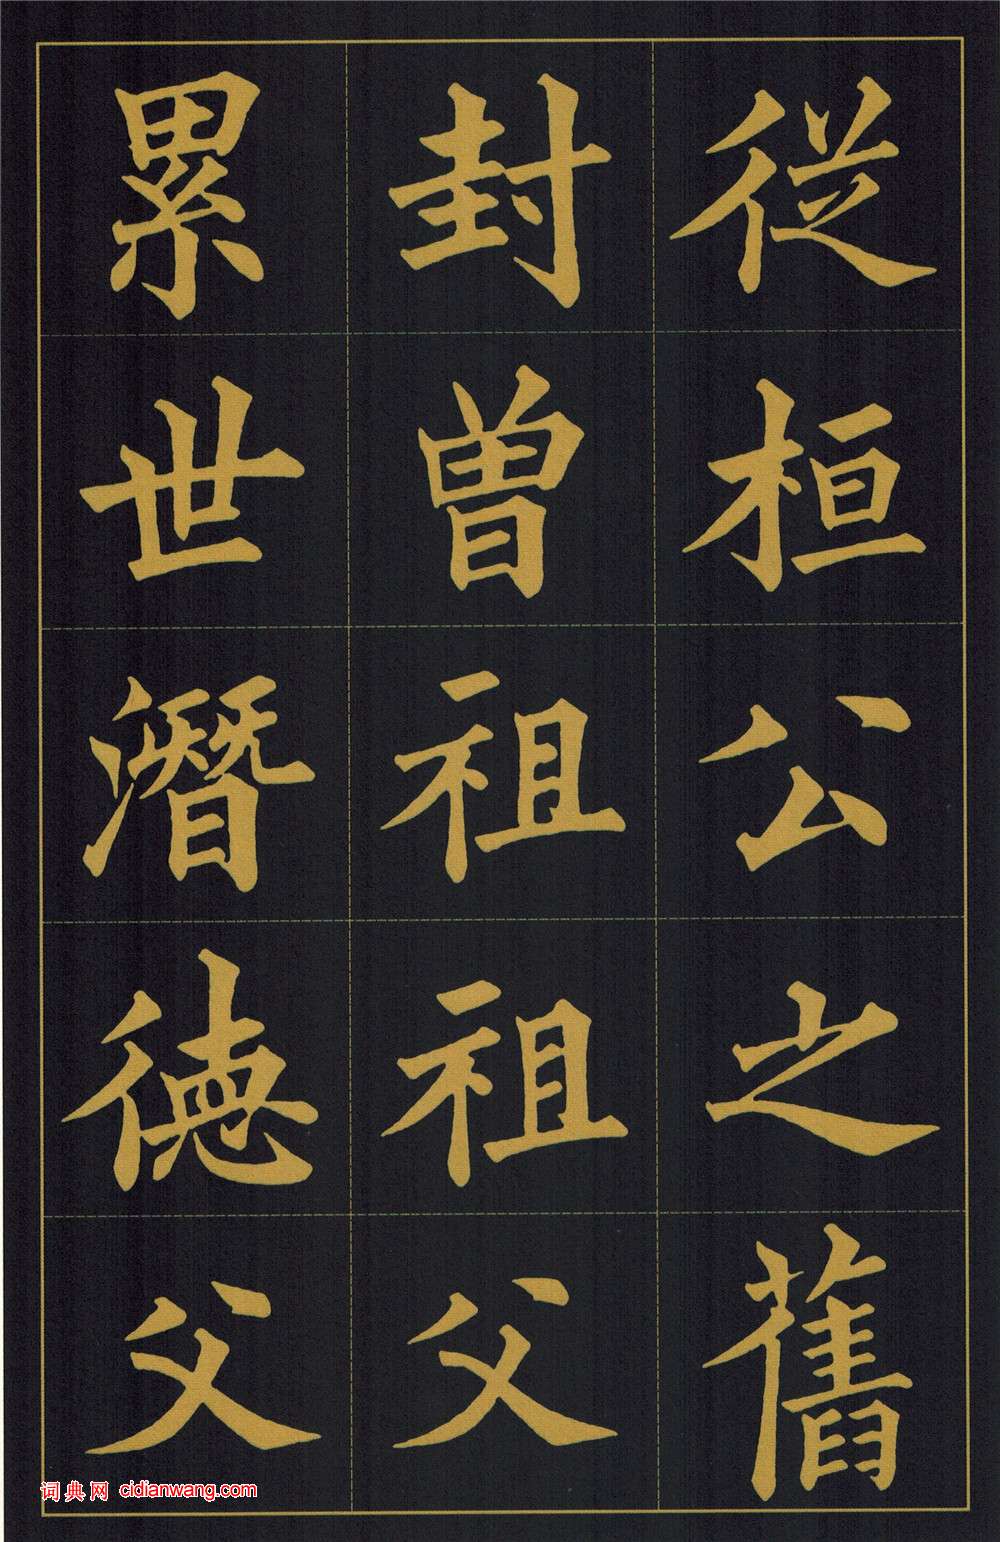 從桓公之舊
封曾祖祖父
累世潛德父
词典网 cidianwang.com